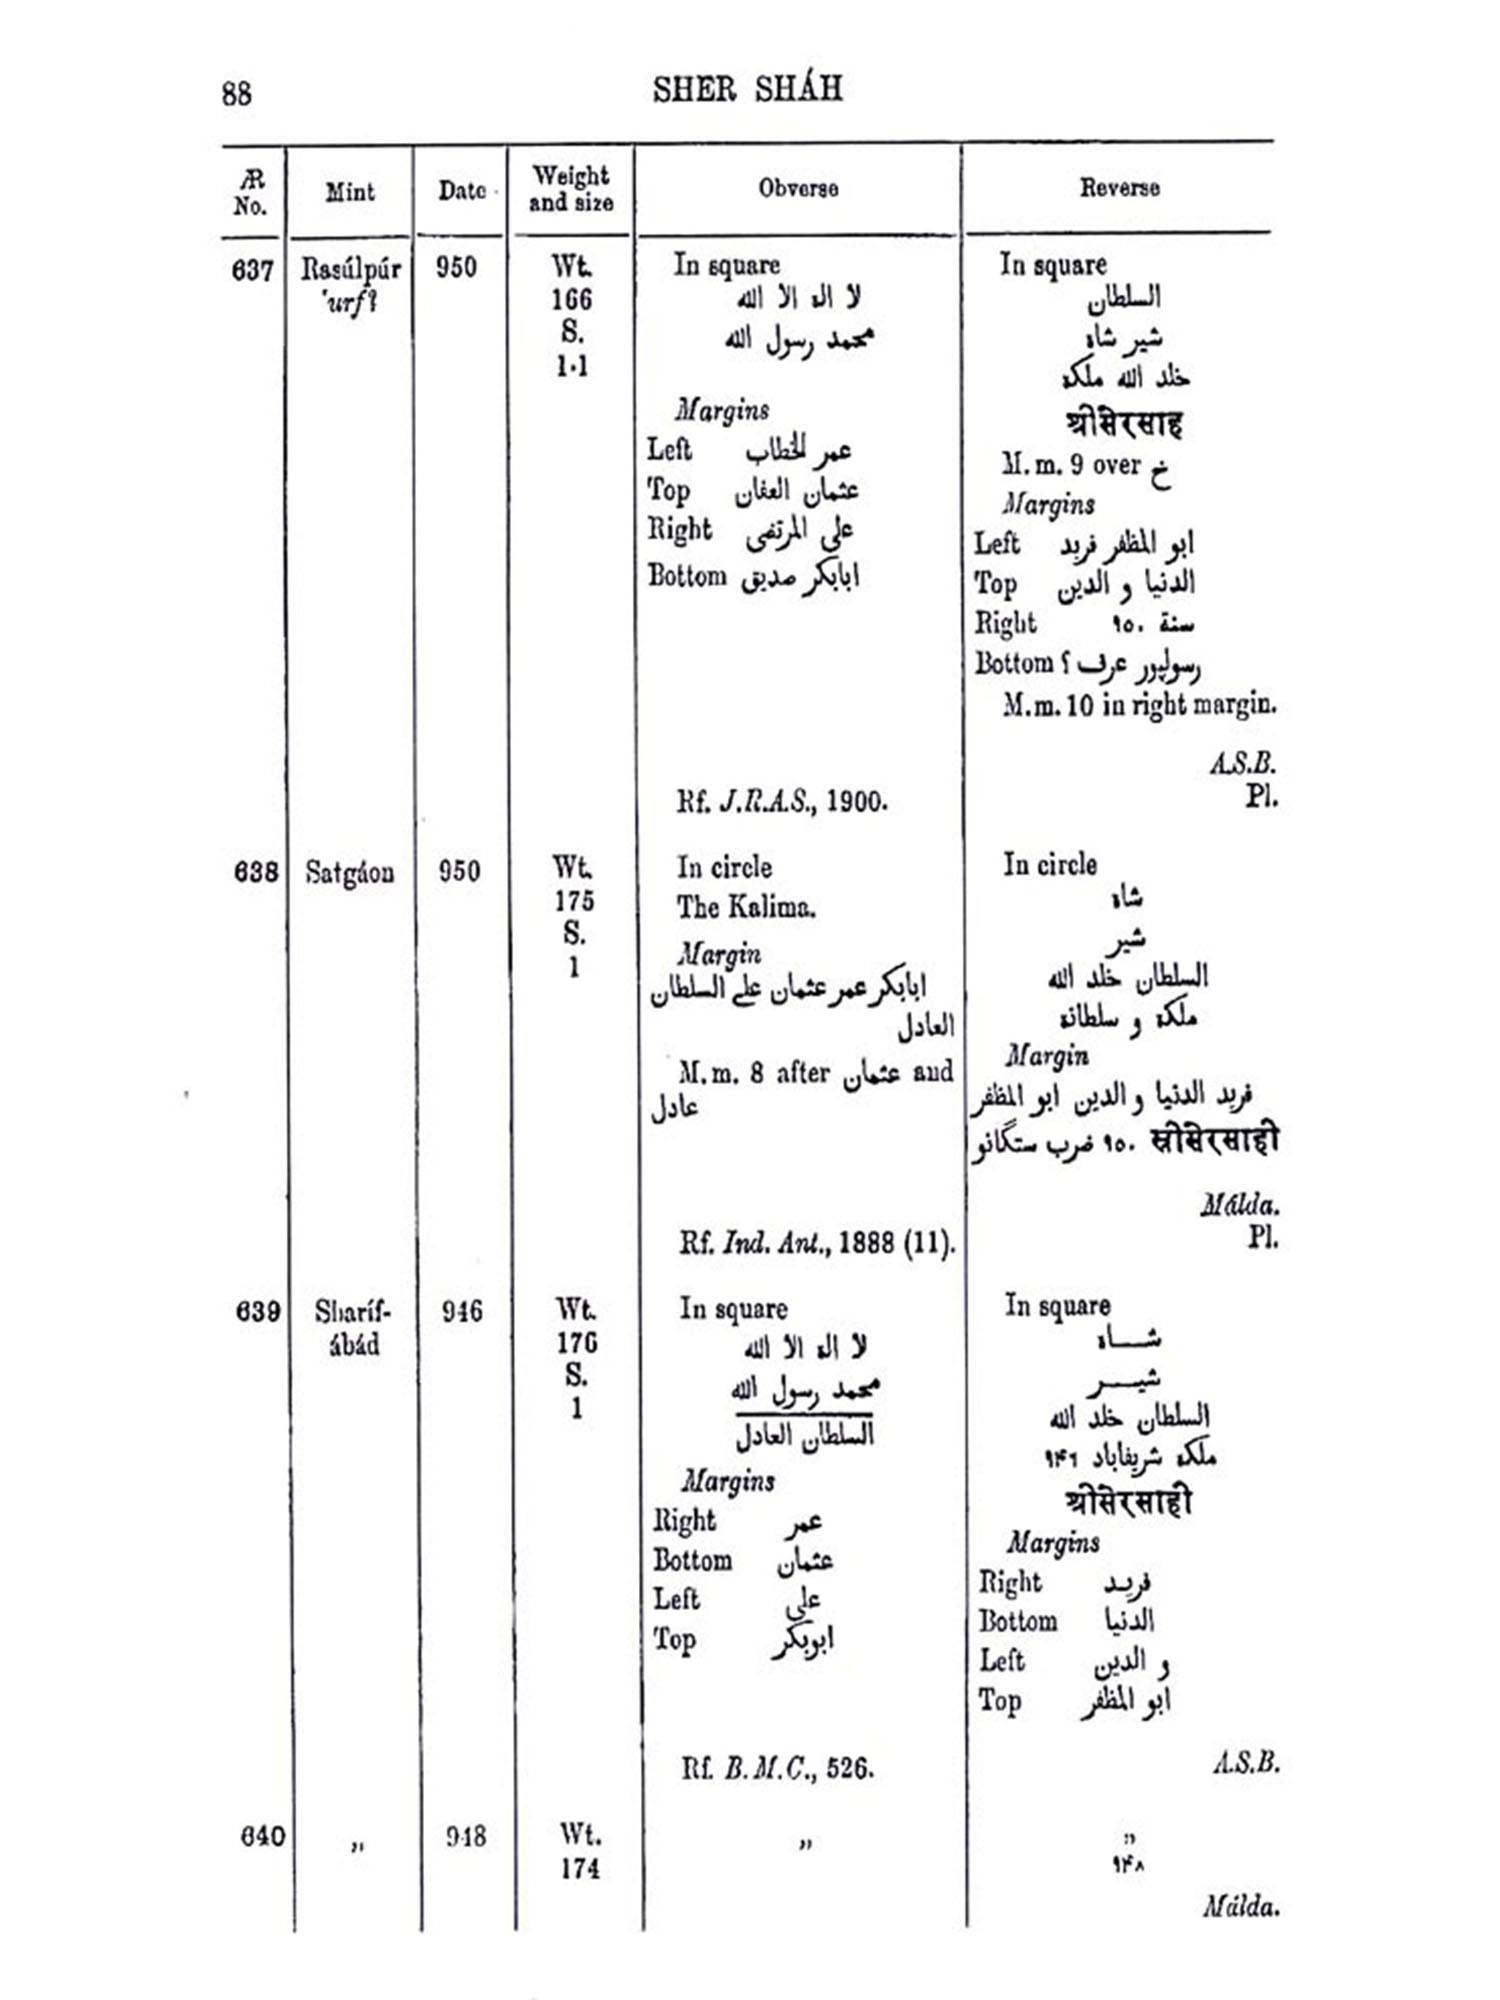 88 SHER SHÁH
Æ No. Mint Date Weight and size Obverse Reverse
637 Rasúlpúr 'urf? 950 Wt. 166 S. 1·1
In square
لا اله الا الله
محمد رسول الله
Margins
Left عمر الخطاب
Top عثمان العفان
Right على المرتضى
Bottom ابابكر صديق
Rf. J.R.A.S., 1900.
In square
السلطان
شير شاه
خلد الله ملكه
श्रीसेरसाह
M.m. 9 over خ
Margins
Left ابو المظفر فريد
Top الدنيا و الدين
Right سنة ٩٥٠
Bottom رسولپور عرف ؟
M.m. 10 in right margin.
A.S.B.
Pl.
638 Satgáon 950 Wt. 175 S. 1
In circle
The Kalima.
Margin
ابابكر عمر عثمان علے السلطان
العادل
M.m. 8 after عثمان and
عادل
Rf. Ind. Ant., 1888 (11).
In circle
شاه
شير
السلطان خلد الله
ملكه و سلطانه
Margin
فريد الدنيا و الدين ابو المظفر
स्रीसेरसाही ٩٥٠ ضرب ستگانو
Málda.
Pl.
639 Sharíf-ábád 946 Wt. 176 S. 1
In square
لا اله الا الله
محمد رسول الله
السلطان العادل
Margins
Right عمر
Bottom عثمان
Left على
Top ابوبكر
Rf. B.M.C., 526.
In square
شــاه
شيــر
السلطان خلد الله
ملكه شريفاباد ٩۴٦
श्रीसेरसाही
Margins
Right فريد
Bottom الدنيا
Left و الدين
Top ابو المظفر
A.S.B.
640 „ 948 Wt. 174 „ „
٩۴٨
Málda.